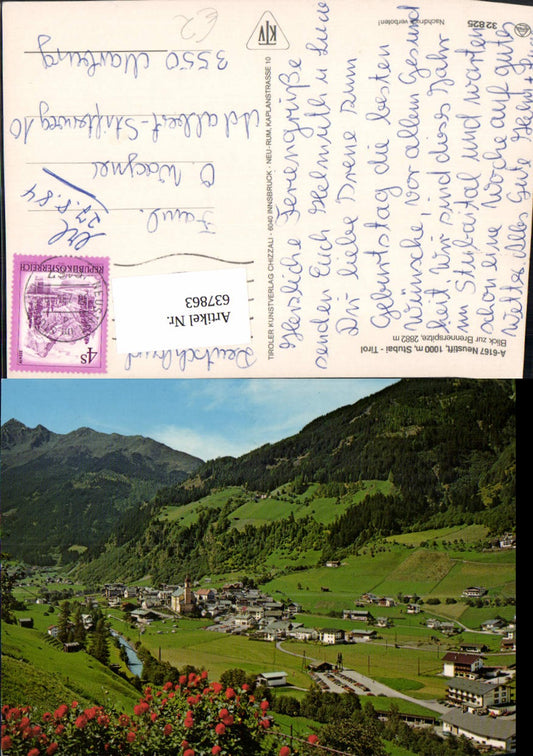 A-6167 Neustift, 1000 m, Stubai - Tirol
Blick zur Brennerspitze, 2882 m
Herzliche Feriengrüße
senden Euch Helmuth u. Luise
Dir liebe Irene zum
Geburtstag die besten
Wünsche! vor allem Gesund
heit, Wir sind dieses Jahr
im Stubaital und warten
schon eine Woche auf gutes
Alles Gute
TIROLER KUNSTVERLAG CHIZZALI · 6040 INNSBRUCK - NEU-RUM, KAPLANSTRASSE 10
KTV
32 825
Nachdruck verboten!
REPUBLIK ÖSTERREICH
4S
27.8.84
Artikel Nr.
637863
Fam.
O Wagner
Adalbert-Stifterweg 10
3550 Marburg
Deutschland
€2